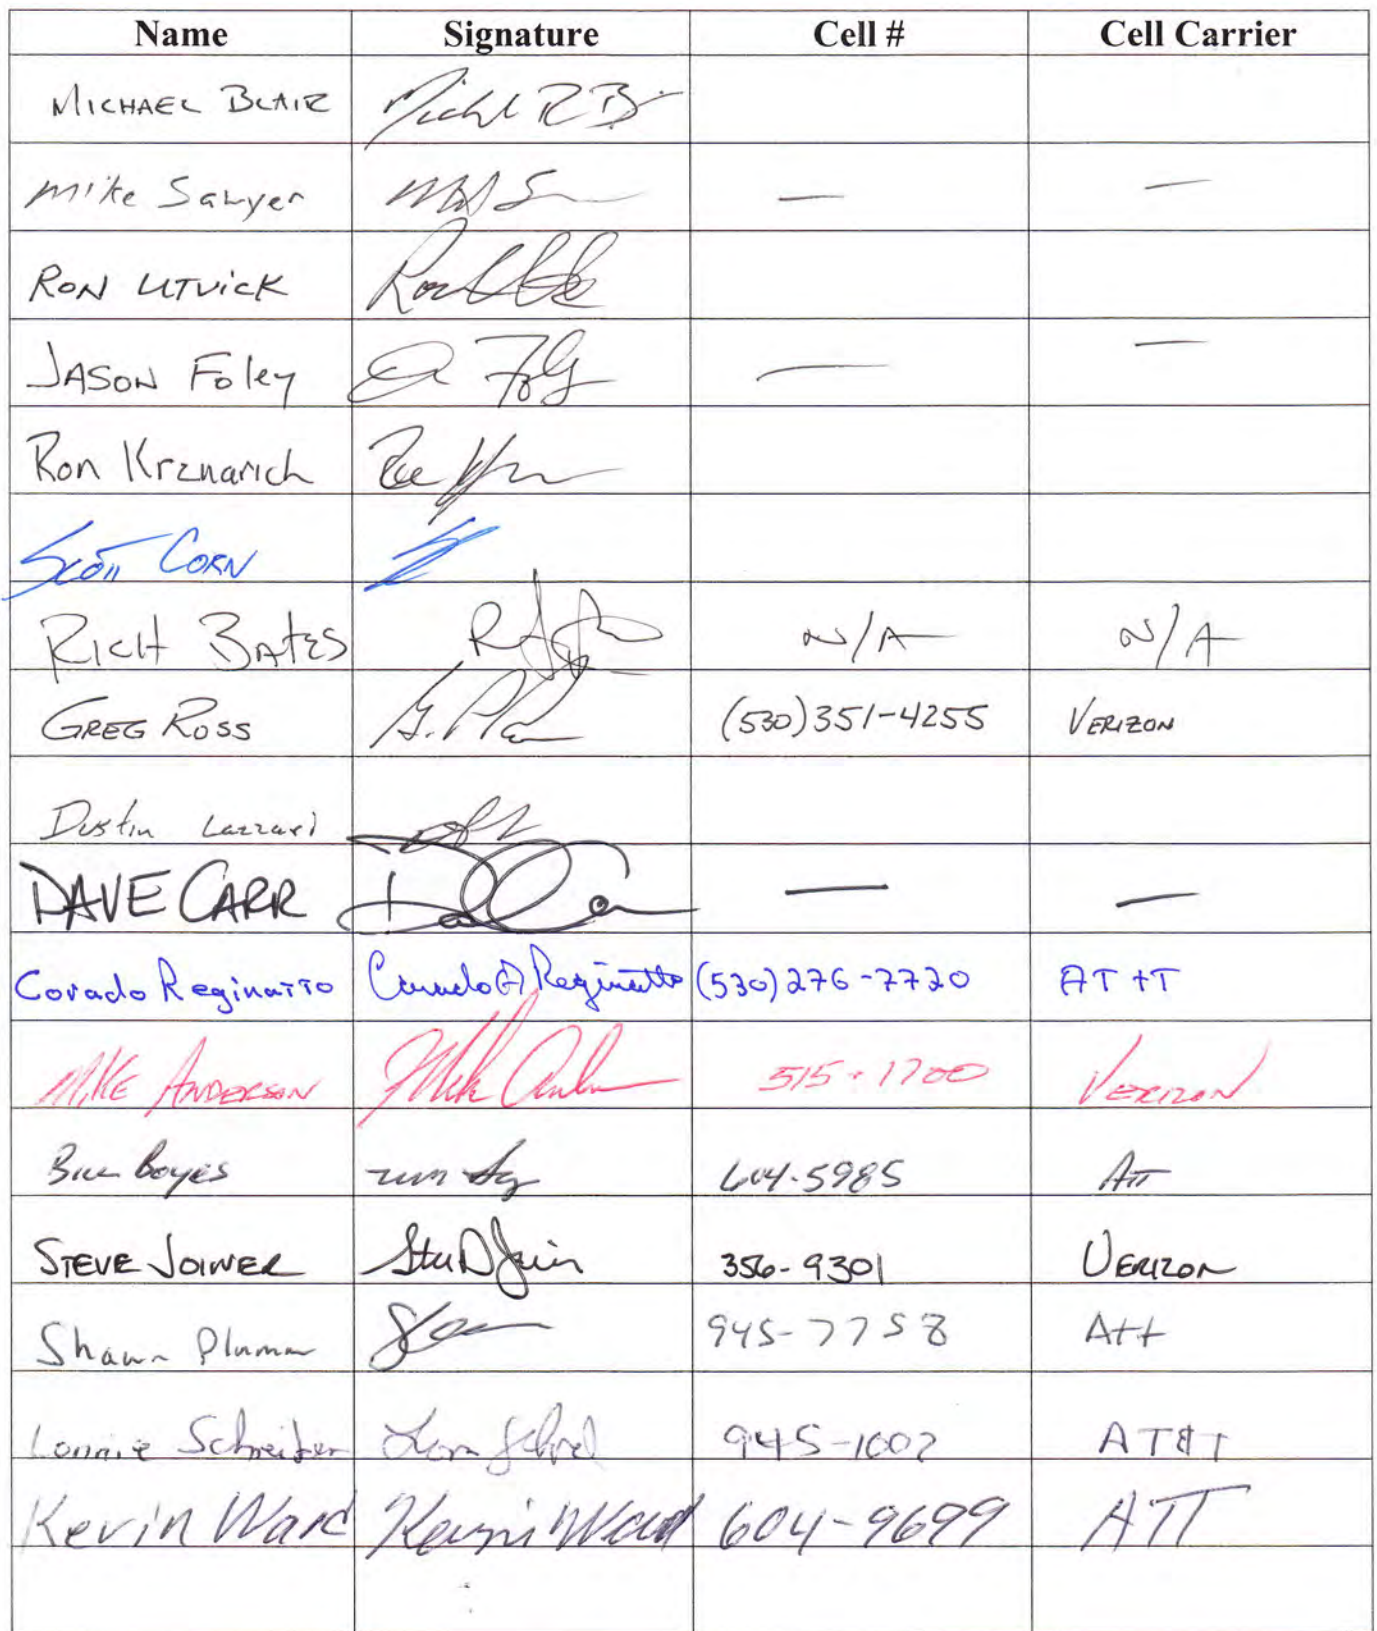 Name Signature Cell # Cell Carrier
MICHAEL BLAIR
Mike Sawyer — —
RON UTVICK
JASON Foley — —
Ron Krznarich
SCOTT CORN
RICH BATES N/A N/A
GREG ROSS (530)351-4255 VERIZON
Dustin Lazzari
DAVE CARR — —
Corado Reginatto Corado Reginatto (530)276-7720 AT+T
MIKE ANDERSON 515-1700 VERIZON
Bill Boyes 604-5985 ATT
STEVE JOINER 356-9301 VERIZON
Shawn 945-7758 Att
Lonnie Schreiber 945-1002 AT&T
Kevin Ward Kevin Ward 604-9699 ATT